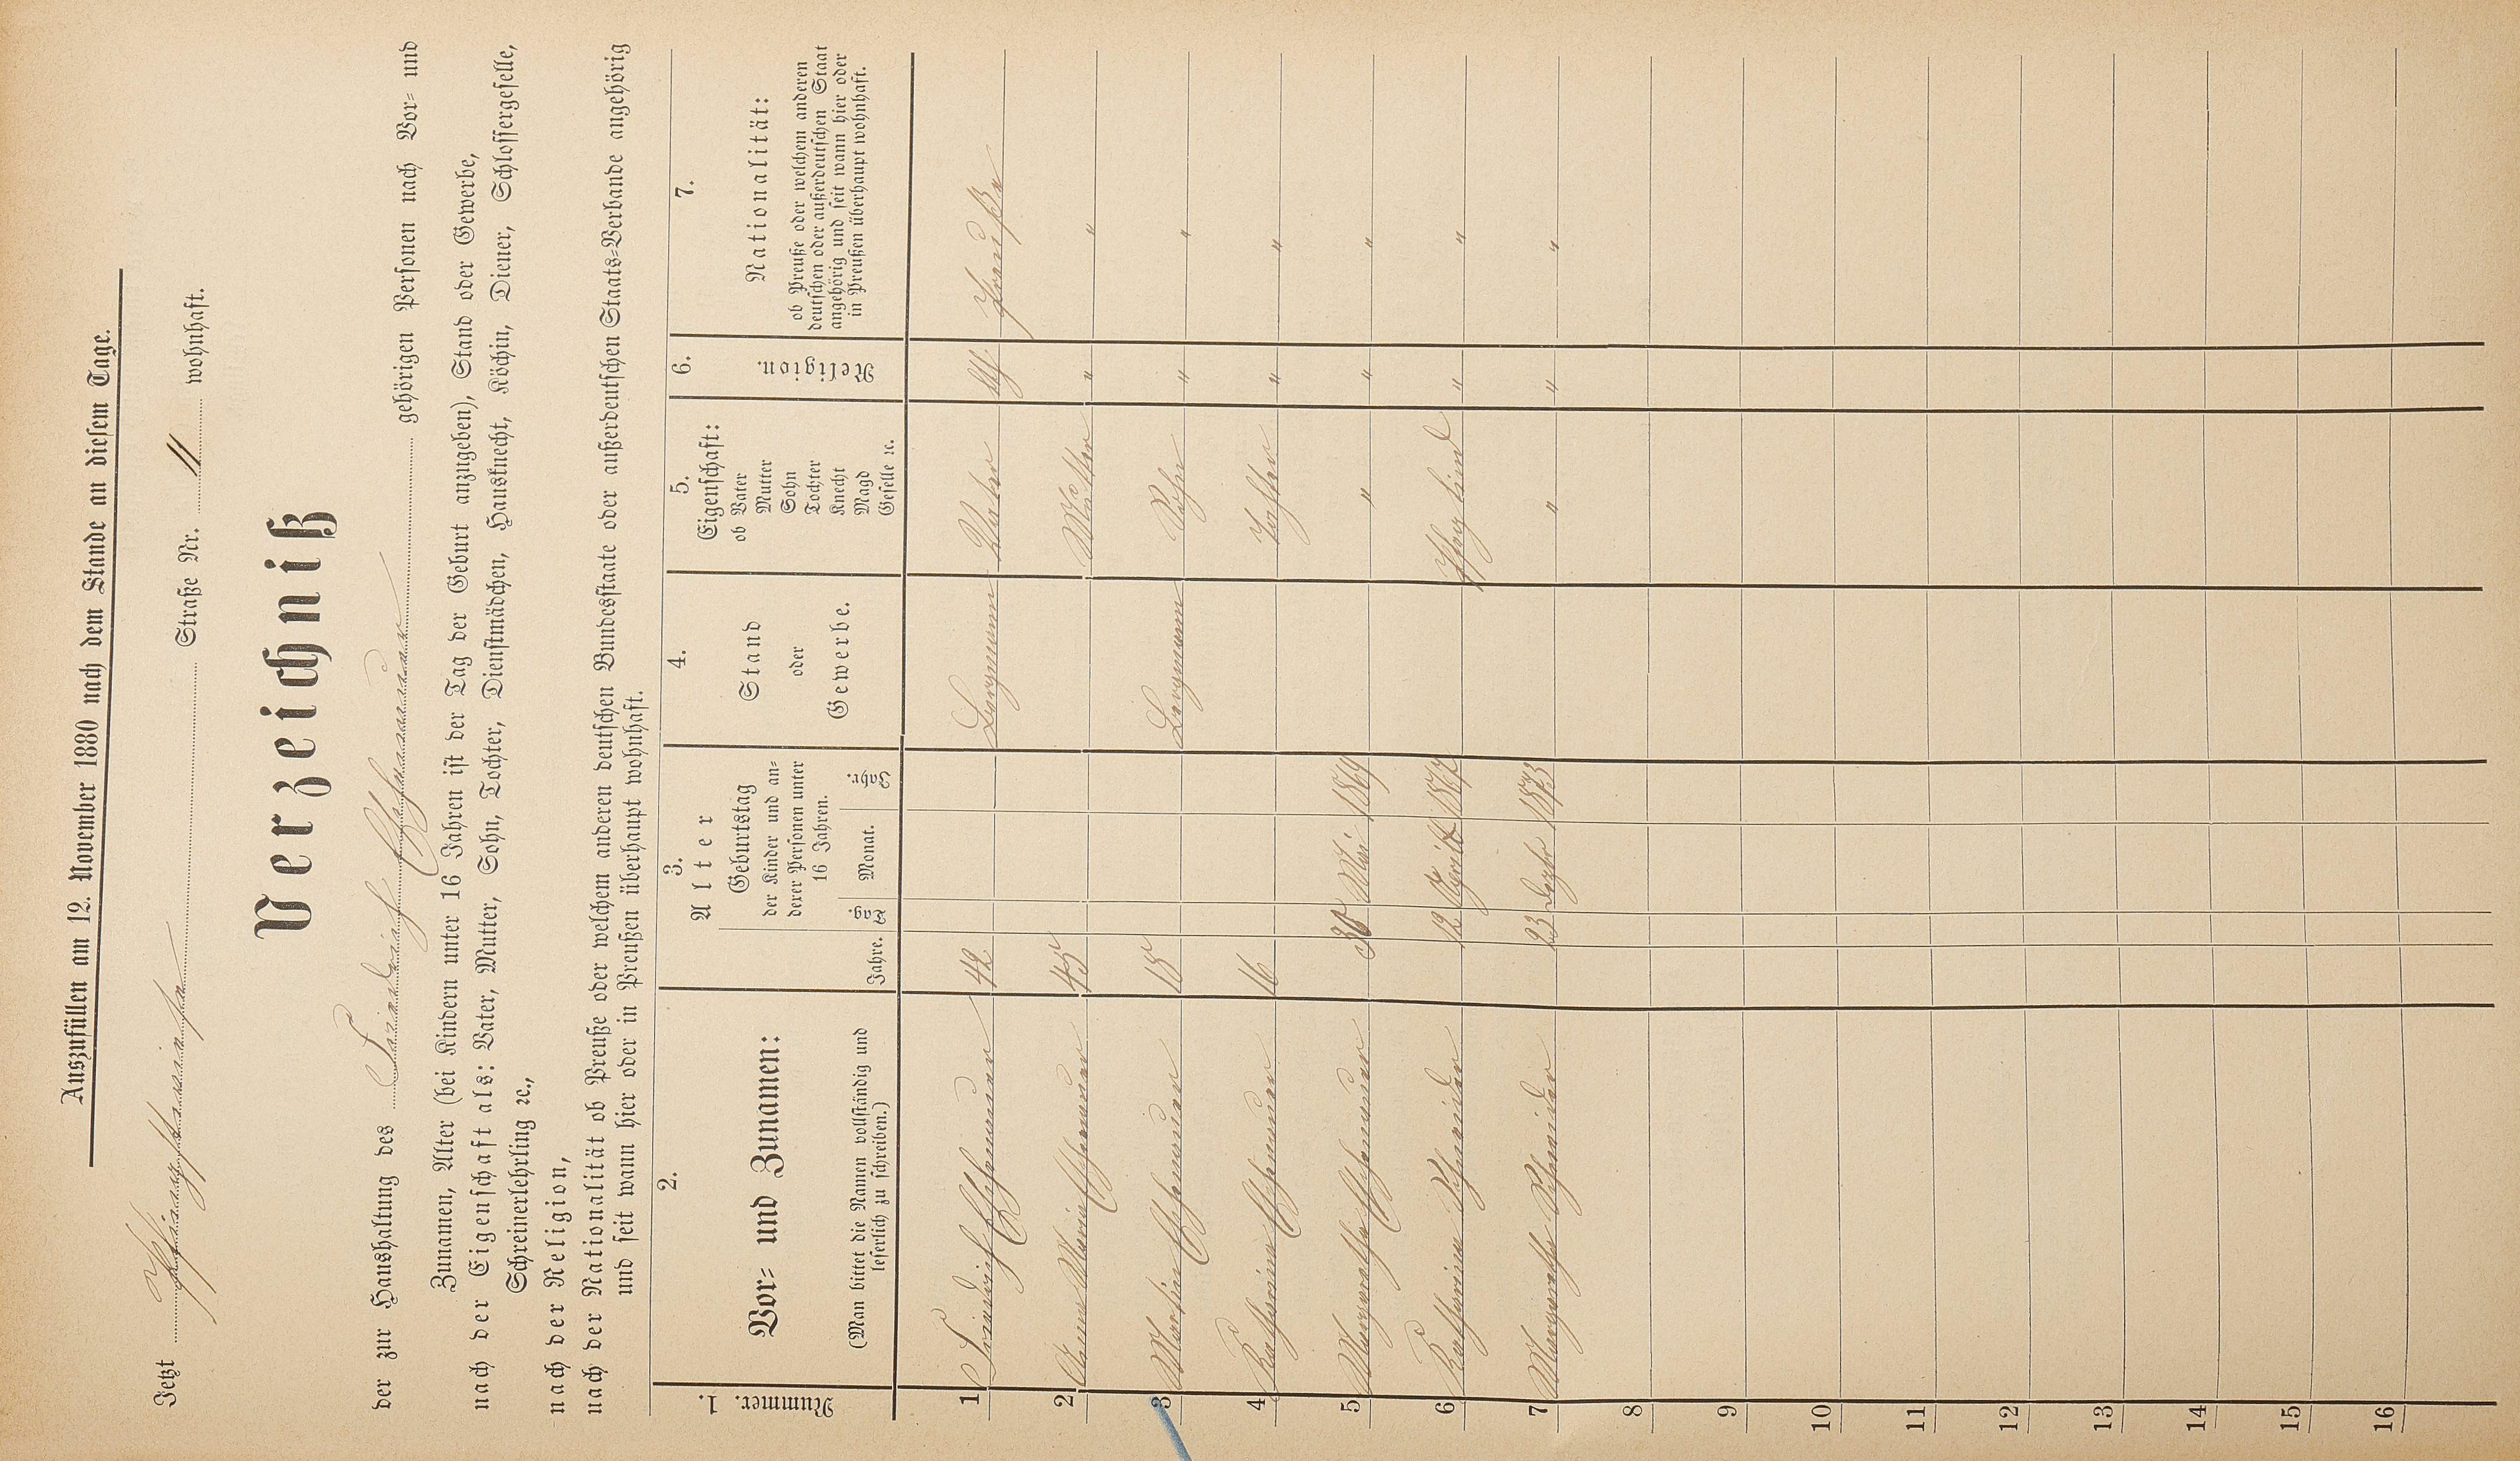 Auszufüllen am 12. November 1880 nach dem Stande an diesem Tage.
Jetzt Straße Nr. 11 wohnhaft.
Verzeichniß
der zur Haushaltung des Friedrich gehörigen Personen nach Vor- und
Zunamen, Alter (bei Kindern unter 16 Jahren ist der Tag der Geburt anzugeben), Stand oder Gewerbe,
nach der Eigenschaft als: Vater, Mutter, Sohn, Tochter, Dienstmädchen, Hausknecht, Köchin, Diener, Schlossergeselle,
Schreinerlehrling ꝛc.,
nach der Religion,
nach der Nationalität ob Preuße oder welchem anderen deutschen Bundesstaate oder außerdeutschen Staats-Verbande angehörig
und seit wann hier oder in Preußen überhaupt wohnhaft.
1. 2. 3. 4. 5. 6. 7.
Nummer.
Vor- und Zunamen:
(Man bittet die Namen vollständig und
leserlich zu schreiben.)
Alter
Jahre.
Geburtstag
der Kinder und an-
derer Personen unter
16 Jahren.
Tag. Monat. Jahr.
Stand
oder
Gewerbe.
Eigenschaft:
ob Vater
Mutter
Sohn
Tochter
Knecht
Magd
Geselle ꝛc.
Religion.
Nationalität:
ob Preuße oder welchem anderen
deutschen oder außerdeutschen Staat
angehörig und seit wann hier oder
in Preußen überhaupt wohnhaft.
1 Friedrich 42 Bergmann Vater Preuße
2 Anna Maria 45 Mutter " "
3 Martin 18 Bergmann Sohn " "
4 Katharina 16 Tochter " "
5 Margaretha 30 Mai 1869 " " "
6 Katharina Schneider 12 April 1867 Pflegkind " "
7 Margaretha Schneider 23 Dezbr 1873 " " "
8
9
10
11
12
13
14
15
16